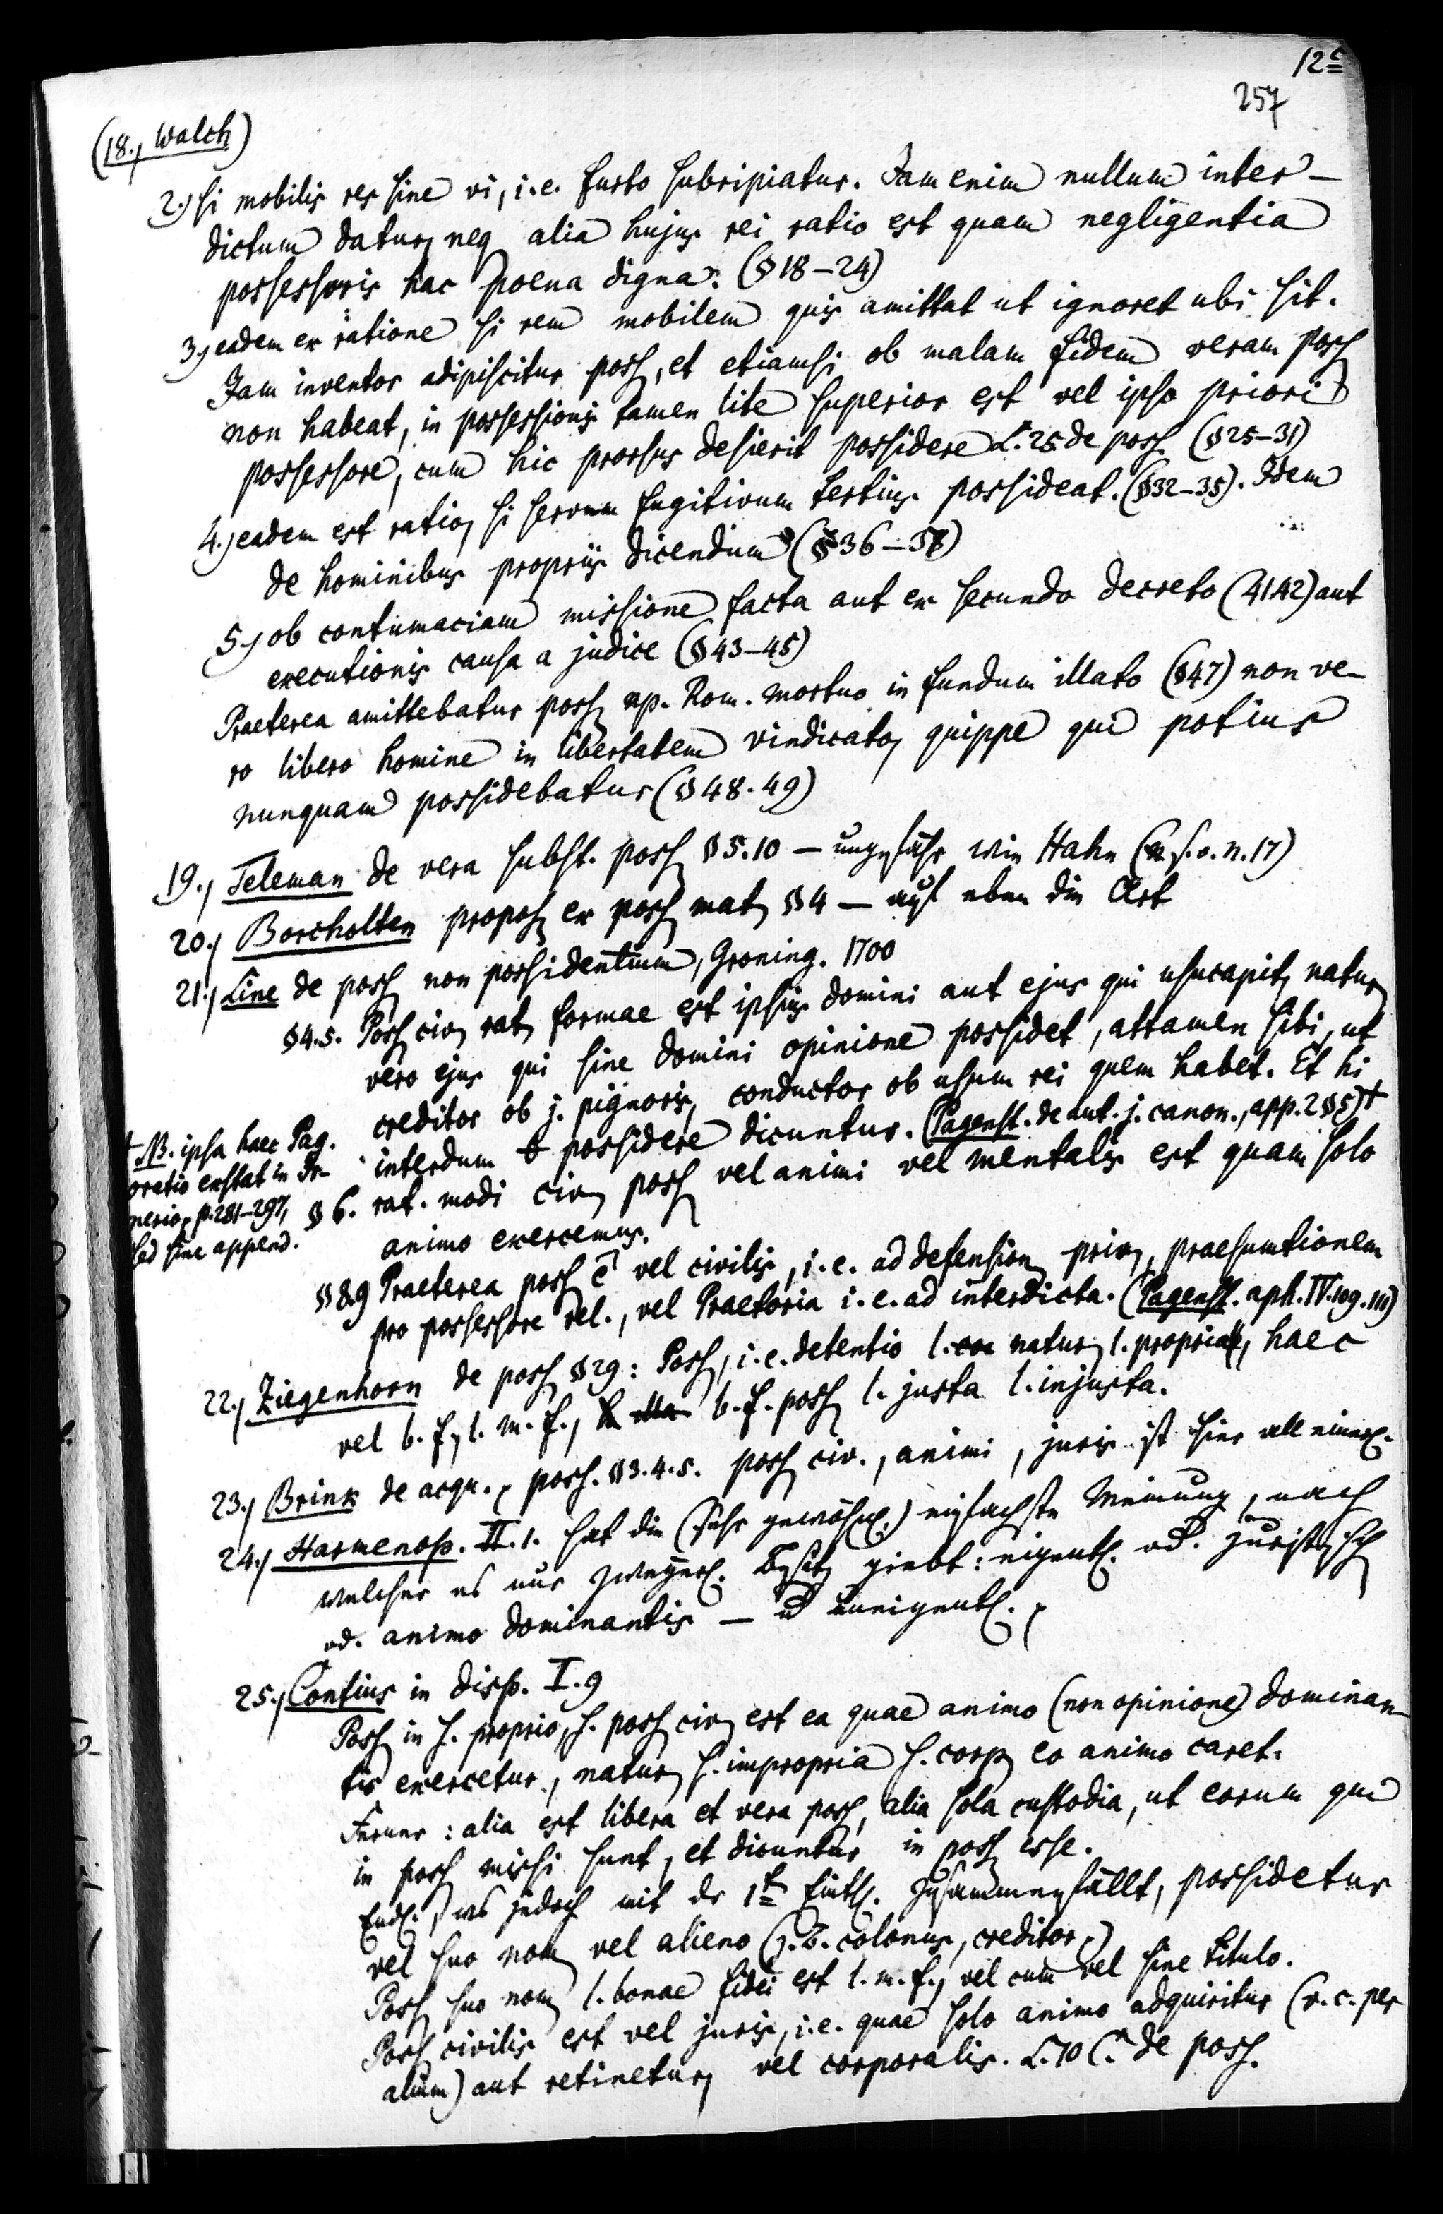 12c
257
(18., Walch)
2.) si mobilis res sine vi, i.e. furto subripiatur. Jam enim nullum inter-
dictum datur, neq alia hujus rei ratio est quam negligentia
possessoris hac poena digna. (§18-24)
3.) eadem ex ratione si rem mobilem quis amittat ut ignoret ubi sit.
Jam inventor adipiscitur poss, et etiamsi ob malam fidem veram poss
non habeat, in possessionis tamen lite superior est vel ipso priori
possessore, cum hic prorsus desierit possidere L. 25 de poss. (§25-31)
4.) eadem est ratio, si servum fugitivum tertius possideat. (§32-35). Idem
de hominibus propriis dicendum (§36-37)
5.) ob contumaciam missione facta aut ex secundo decreto (41.42) aut
executionis causa a judice (§43-45)
Praeterea amittebatur poss ap. Rom. mortuo in fundum illato (§47) non ve-
ro libero homine in libertatem vindicato, quippe qui potius
nunquam possidebatur (§48.49)
19., Teleman de vera subst. poss §5.10 — ungefähr wie Hahn (s.o. n.17)
20., Borcholten propos ex poss mat §4 — auf eben die Art
21., Line de poss non possidentium, Groning. 1700
§4.5. Poss civ rat formae est ipsius domini aut ejus qui usucapit, natur
vero ejus qui sine domini opinione possidet, attamen sibi, ut
creditor ob j. pignoris, conductor ob usum rei quem habet. Et hi
interdum possidere dicuntur. (Pagenst. de aut. j. canon., app. 2 §5) +
+ NB. ipsa haec Pag.
oratio exstat in Ir-
nerio, p. 281-297,
sed sine append.
§6. rat. modi civ poss vel animi vel mentalis est quam solo
animo exercemus.
§8.9 Praeterea poss e vel civilis, i.e. ad defension priv, praesumtionem
pro possessore rel., vel Praetoria i.e. ad interdicta. (Pagenst. aph. IV.109.111)
22., Ziegenhorn de poss §29: Poss, i.e. detentio l. natur l. propria, haec
vel b. f, l. m. f., b. f. poss l. justa l. injusta.
23., Brink de acqu., poss. §3.4.5. poss civ., animi, juris ist hier all einerl.
24., Harmenop. II.1. hat die (sehr gewöhnl.) einfachste Meinung, nach
welcher es nur zweyerl. Besitz giebt: eigentl. od. juristisch
od. animo dominantis — u uneigentl.
25., Contius in disp. I.9
Poss in s. proprio, s. poss civ est ea quae animo (non opinione) dominan-
tis exercetur, natur s. impropria s. corp eo animo caret.
Ferner: alia est libera et vera poss, alia sola custodia, ut eorum qui
in poss missi sunt, et dicuntur in poss esse.
Endl., was jedoch mit der 1ten Einth. zusammenfällt, possidetur
vel suo nom vel alieno (z.B. colonus, creditor)
Poss suo nom l. bonae fidei est l. m. f., vel cum vel sine titulo.
Poss civilis est vel juris, i.e. quae solo animo adquiritur (v.c. per
alium) aut retinetur, vel corporalis. L. 10 C. de poss.